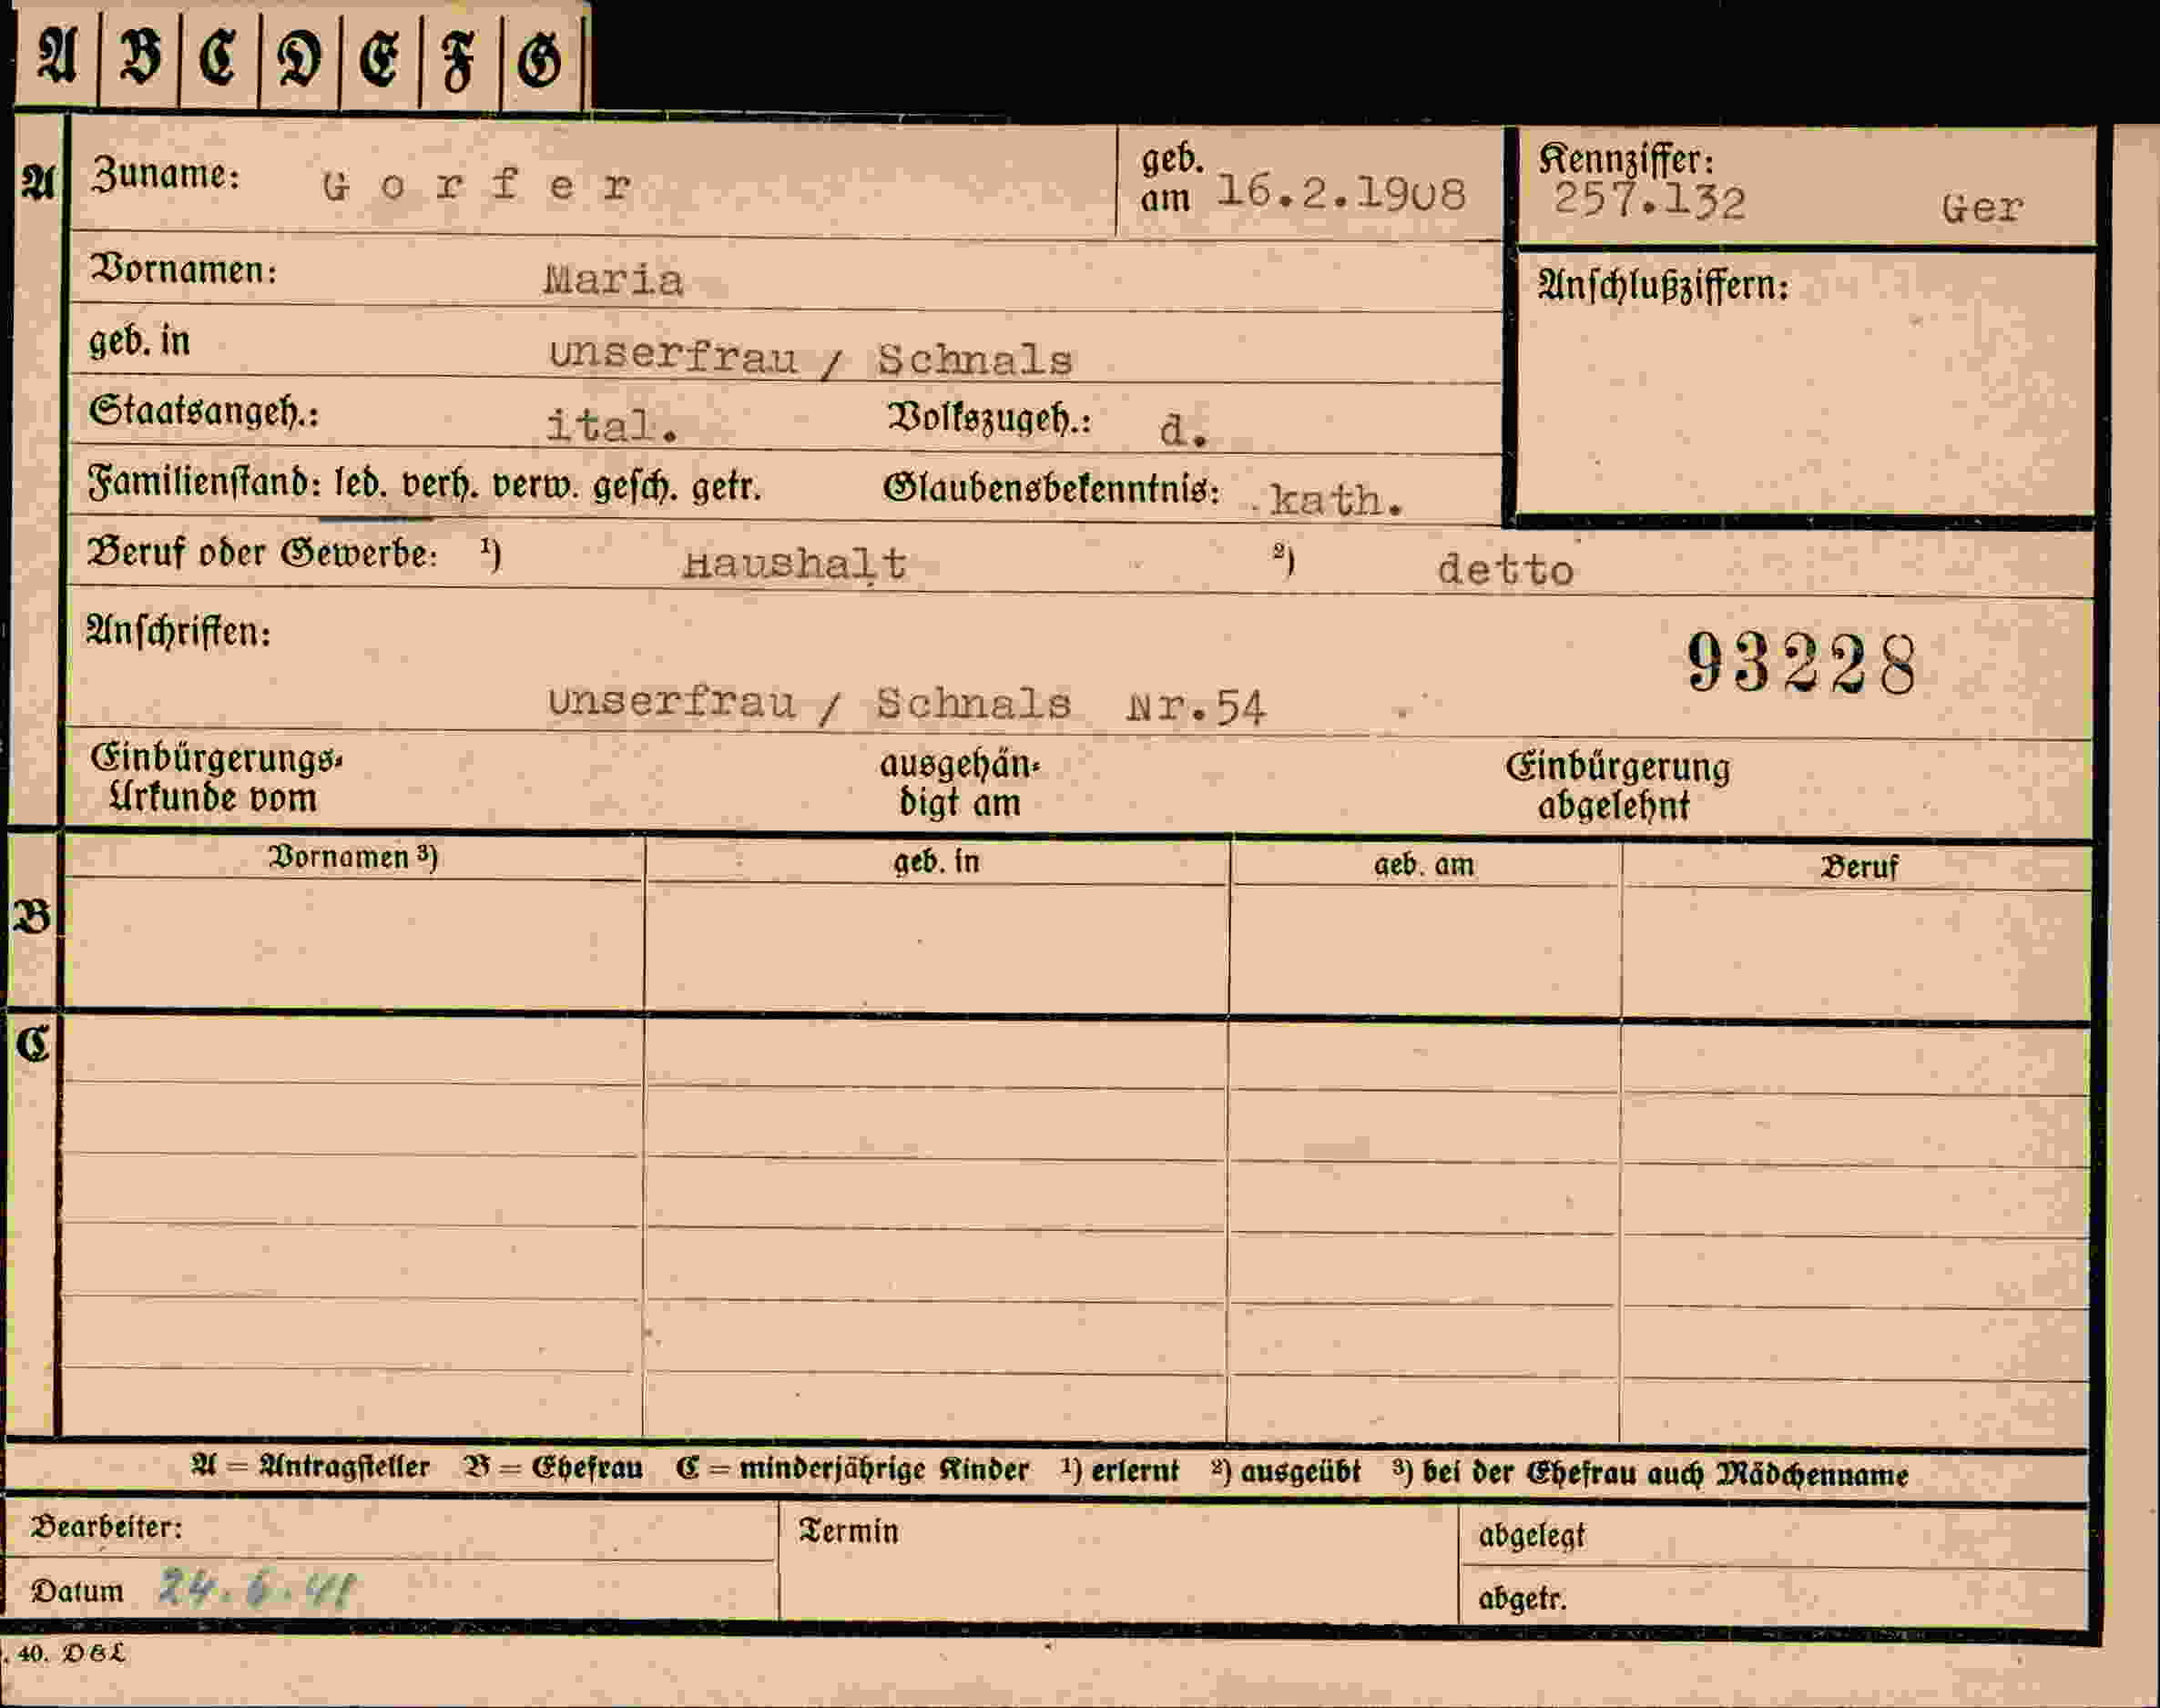 A B C D E F G
A Zuname: Gorfer geb. am 16.2.1908 Kennziffer: 257.132 Ger
Vornamen: Maria Anschlußziffern:
geb. in Unserfrau / Schnals
Staatsangeh.: ital. Volkszugeh.: d.
Familienstand: led. verh. verw. gesch. getr. Glaubensbekenntnis: kath.
Beruf oder Gewerbe: ¹) Haushalt ²) detto
Anschriften: 93228
Unserfrau / Schnals Nr.54
Einbürgerungs- ausgehän- Einbürgerung
Urkunde vom digt am abgelehnt
Vornamen ³) geb. in geb. am Beruf
B
C
A = Antragsteller B = Ehefrau C = minderjährige Kinder ¹) erlernt ²) ausgeübt ³) bei der Ehefrau auch Mädchenname
Bearbeiter: Termin abgelegt
Datum 24.6.41 abgetr.
. 40. D&L